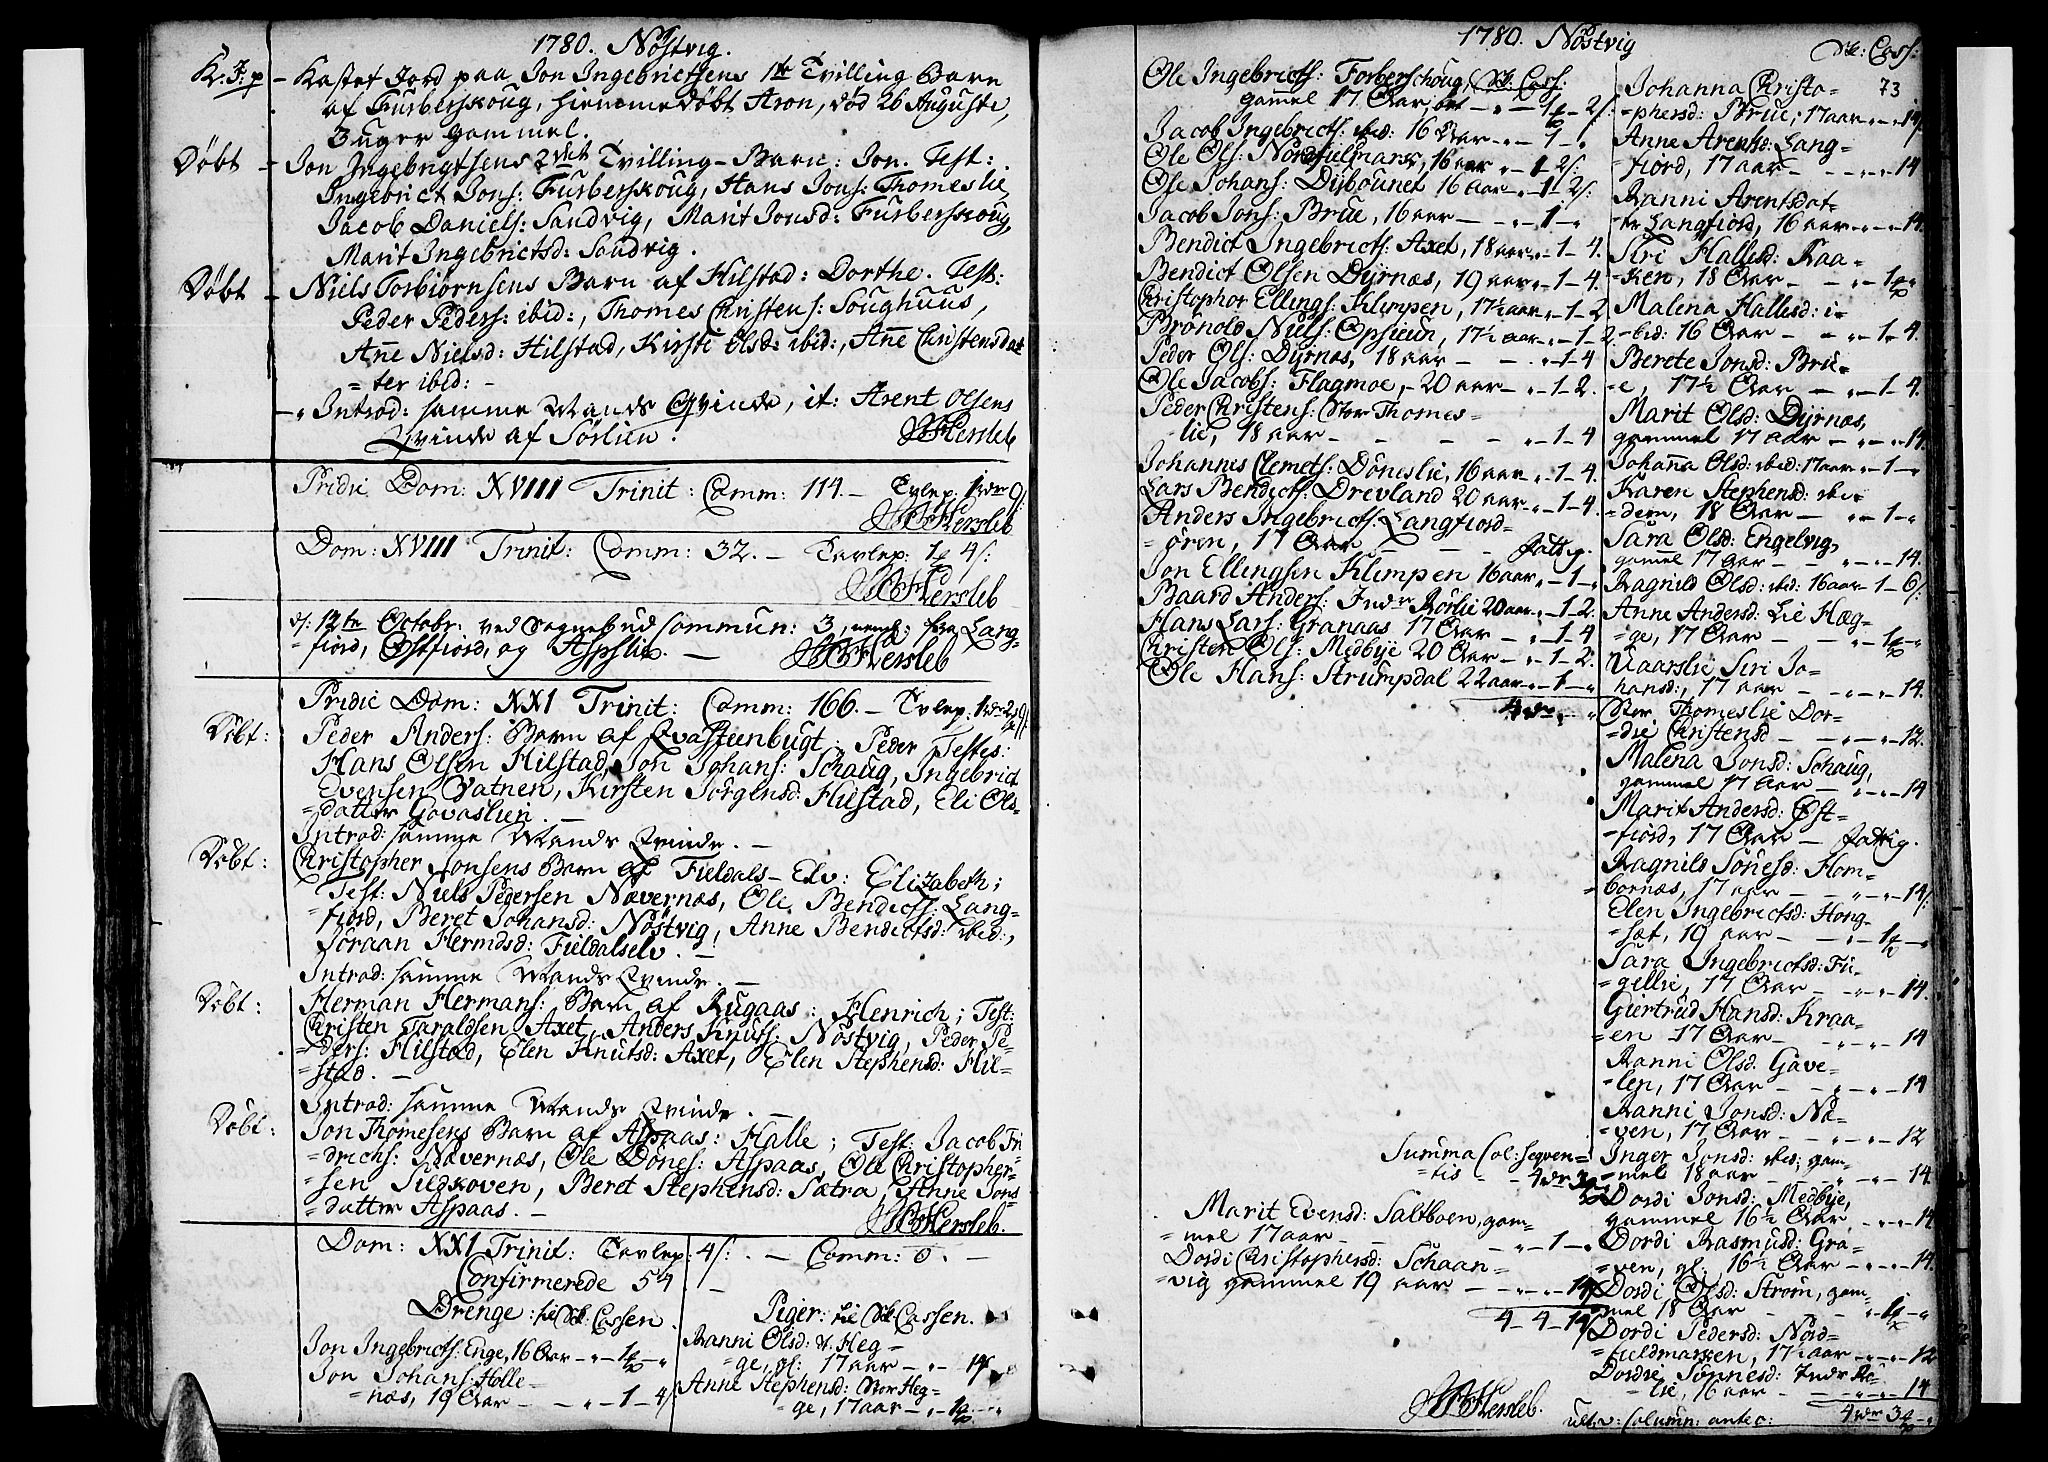 1780. Nöstvig.
K. J. p - Kastet Jord paa Jon Ingebrictsens 1te Tvilling Barn
af Furberskoug, hiemmedöbt Aron, död 26 Auguste,
3 uger gammel.
Döbt - Jon Ingebrigtsens 2det Tvilling-Barn: Jon. Test:
Ingebrict Jons: Furberskoug, Hans Jons: Thomeslie,
Jacob Daniels: Sandvig, Marit Jonsd: Furberskoug,
Marit Ingebrictsd: Sandvig.
Döbt - Niels Torbiörnsens Barn af Hilstad: Dorthe. Test:
Peder Peders: ibid:, Thomes Christens: Soughuus,
Anne Nielsd: Hilstad, Kirsti Olsd: ibid:, Anne Christensdat
=ter ibid: -
Introd: samme Mands Qvinde, it: Arent Olsens
Qvinde af Sörlien.
Hersleb
Pridie Dom: XVIII Trinit: Comm: 114. -
Hersleb
Dom: XVIII Trinit: Comm: 32. - Tavlep: 1 4 s:
Hersleb
d: 12te Octobr: ved Sognebud commun: 3, neml: fra Lang=
=fiord, Östfiord, og Aspslie. -
Hersleb
Pridie Dom: XXI Trinit: Comm: 166. -
Döbt: Peder Anders: Barn af Qvasteenbugt: Peder Testes:
Hans Olsen Hilstad, Jon Johans: Schaug, Ingebrict
Evensen Vatnen, Kirsten Jörgensd: Hilstad, Eli Ols=
=datter Govaslien. -
Introd: samme Mands Qvinde. -
Döbt: Christopher Jonsens Barn af Fieldals-Elv: Elizabeth;
Test: Niels Pedersen Nævernæs, Ole Bendicts: Lang=
=fiord, Beret Johansd: Nöstvig, Anne Bendictsd: ibid:,
Jöraan Hermdsd: Fieldalselv. -
Introd: samme Mands Qvinde. -
Döbt: Herman Hermans: Barn af Rugaas: Henrich; Test:
Christen Taraldsen Axet, Anders Knuts: Nöstvig, Peder Pe=
=ders: Hilstad, Elen Knutsd: Axet, Elen Stephensd: Hil=
=stad. -
Introd: samme Mands Qvinde. -
Döbt: Jon Thomesens Barn af Aspaas: Halle; Test: Jacob Fri
=drichs: Nævernæs, Ole Dönes: Aspaas, Ole Christopher=
=sen Sildkoven, Beret Stephensd: Sætra, Anne Jons
=datter Aspaas. -
Hersleb.
Dom: XXI Trinit: Tavlep: 4 s: - Comm: 0. -
Confirmerede 54
Drenge: til Sk: Cassen
Jon Ingebricts: Enge, 16 Aar - 1
Jon Johans: Holle=
=næs, 19 Aar - 1 - 4
Piger: til Sk: Cassen.
Ranni Olsd: Heg=
=ge, gl: 17 aar - 14
Anne Stephensd: Stor Heg=
=ge, 17 aar - 1
1780. Nöstvig
Sk: Cass:
73
Ole Ingebricts: Forberschoug, Sk: Cass:
gammel 17 Aar - 1 - 2
Jacob Ingebricts: ibid: 16 Aar - 1
Ole Ols: Nordfieldmark, 16 aar - 1 - 2
Ole Johans: Dybounet 16 aar - 1 - 2
Jacob Jons: Brue, 16 aar - 1
Bendict Ingebricts: Axet, 18 aar - 1 - 4.
Bendict Olsen Dyrnæs, 19 aar - 1 - 4.
Christopher Ellings: Klimpen, 17½ aar - 1 - 2
Brönold Niels: Opsieun, 17½ aar - 1 - 2
Peder Ols: Dyrnæs, 18 aar - 1 - 4
Ole Jacobs: Flagmoe, 20 aar - 1 - 2.
Peder Christens: Stor Thomes=
lie, 18 aar - 1 - 4
Johannes Clemets: Döneslie, 16 aar - 1 - 4.
Lars Bendicts: Drevland 20 aar - 1 - 4.
Anders Ingebricts: Langfiord=
=ören, 17 Aar - fattig.
Jon Ellingsen Klimpen 16 aar - 1
Baard Anders: Indr Rörlie 20 aar - 1 - 2
Hans Lars: Granaas 17 Aar - 1 - 4
Christen Ols: Medbye 20 Aar - 1 - 2.
Ole Hans: Strumpdal 22 aar - 1
Johanna Christo=
=phersd: Brue, 17 aar - 14
Anne Arentsd: Lang=
=fiord, 17 aar - 14
Ranni Arentsdat=
ter Langfiord, 16 aar - 14
Siri Hallesd: Kaa=
=ken, 18 Aar - 1
Malena Hallesd: i=
=bid: 16 Aar - 1 - 4.
Berete Jonsd: Bru=
=e, 17½ Aar - 1 - 4.
Marit Olsd: Dyrnæs,
gammel 17 aar - 14
Johanna Olsd: ibid: 17 aar - 1
Karen Stephensd: ibi=
=dem, 18 Aar - 1
Sara Olsd: Engelvig,
gammel 17 aar - 14.
Ragnild Olsd: ibid: 16 aar 1 - 6
Anne Andersd: Lie Hæg=
=ge, 17 Aar - 1
Vaarslie Siri Jo=
hansd:, 17 aar - 14.
Stor Thomeslie Dor=
=die Christensd - 12.
Malena Jonsd: Schaug,
gammel 17 aar - 14
Marit Andersd: Öst=
=fiord, 17 Aar - fattig.
Ragnild Jönesd: Hom=
=bornæs, 17 aar - 14
Elen Ingebrictsd: Hong=
=sæt, 19 aar - 1
Sara Ingebrictsd: Fu=
=gellie, 17 Aar - 14.
Giertrud Hansd: Kraa=
=en 17 Aar - 14
Ranni Olsd: Gave=
=len, 17 Aar - 14
Ranni Jonsd: Næ=
=ven, 17 Aar - 12
Inger Jonsd: ibid; gam=
=mel 18 aar - 14
Dordi Jonsd: Medbye,
gammel 16½ Aar - 14
Dordi Rasmusd: Gra=
=ven, gl: 16½ Aar - 14.
Dordi Olsd: Ström, gam=
mel 18 Aar - 1
Dordi Pedersd: Nord=
=fieldmarken, 17½ aar - 12
Dordie Jönnesd: Indr Rö=
=lie, 16 aar - 14
Summa Col: seqven=
=tis
Marit Evensd: Saltboen, gam=
=mel 17 aar - 1
Dordi Christophersd: Schaan=
=vig gammel 19 aar - 14
4 - 4 - 14
Hersleb.
ult: v: Column: antec: